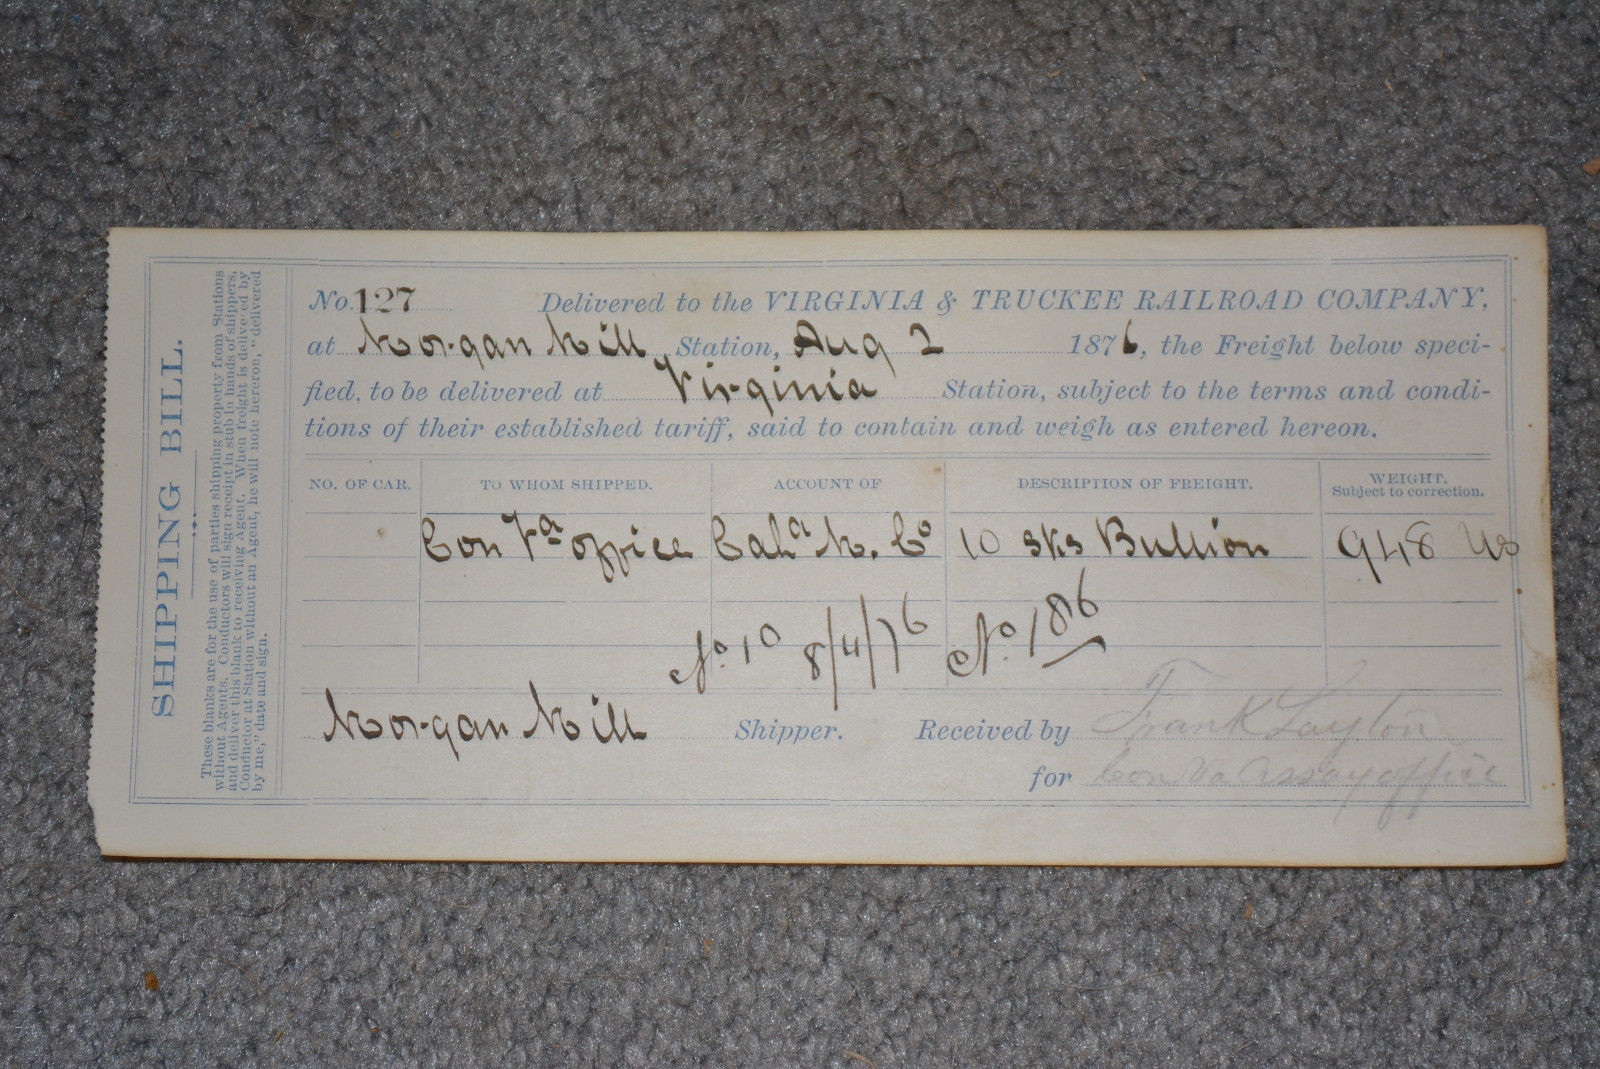 SHIPPING BILL.
These blanks are for the use of parties shipping property from Stations
without Agents. Conductors will sign receipt in stub in hands of shippers,
and deliver this blank to receiving Agent. When freight is delivered by
Conductor at Station without an Agent, he will note hereon, "delivered
by me," date and sign.
No. 127 Delivered to the VIRGINIA & TRUCKEE RAILROAD COMPANY,
at Morgan Mill Station, Aug 2 1876, the Freight below speci-
fied, to be delivered at Virginia Station, subject to the terms and condi-
tions of their established tariff, said to contain and weigh as entered hereon.
NO. OF CAR. TO WHOM SHIPPED. ACCOUNT OF DESCRIPTION OF FREIGHT. WEIGHT.
Subject to correction.
Con Va office Cala M. Co 10 sks Bullion 948 lbs
No. 10 8/4/76 No. 186
Morgan Mill Shipper. Received by Frank Layton
for Con Va Assay office